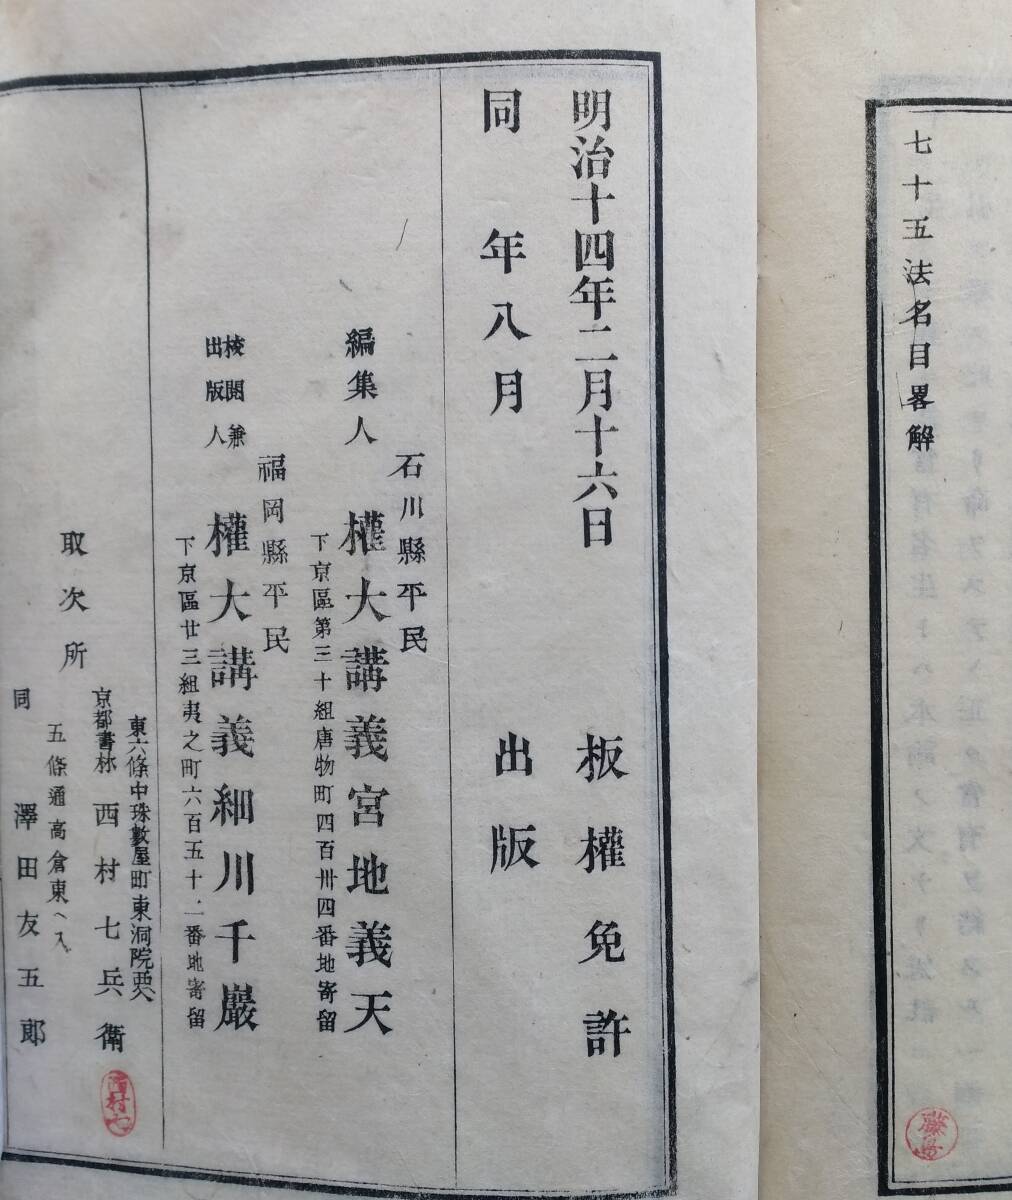 七十五法名目畧解
明治十四年二月十六日 板權免許
同年八月 出版
石川縣平民
編集人 權大講義宮地義天
下京區第三十組唐物町四百卅四番地寄留
福岡縣平民
校閲兼
出版人 權大講義細川千巖
下京區廿三組夷之町六百五十二番地寄留
取次所
東六條中珠數屋町東洞院西入
京都書林 西村七兵衛
五條通高倉東ヘ入
同 澤田友五郎
西村七